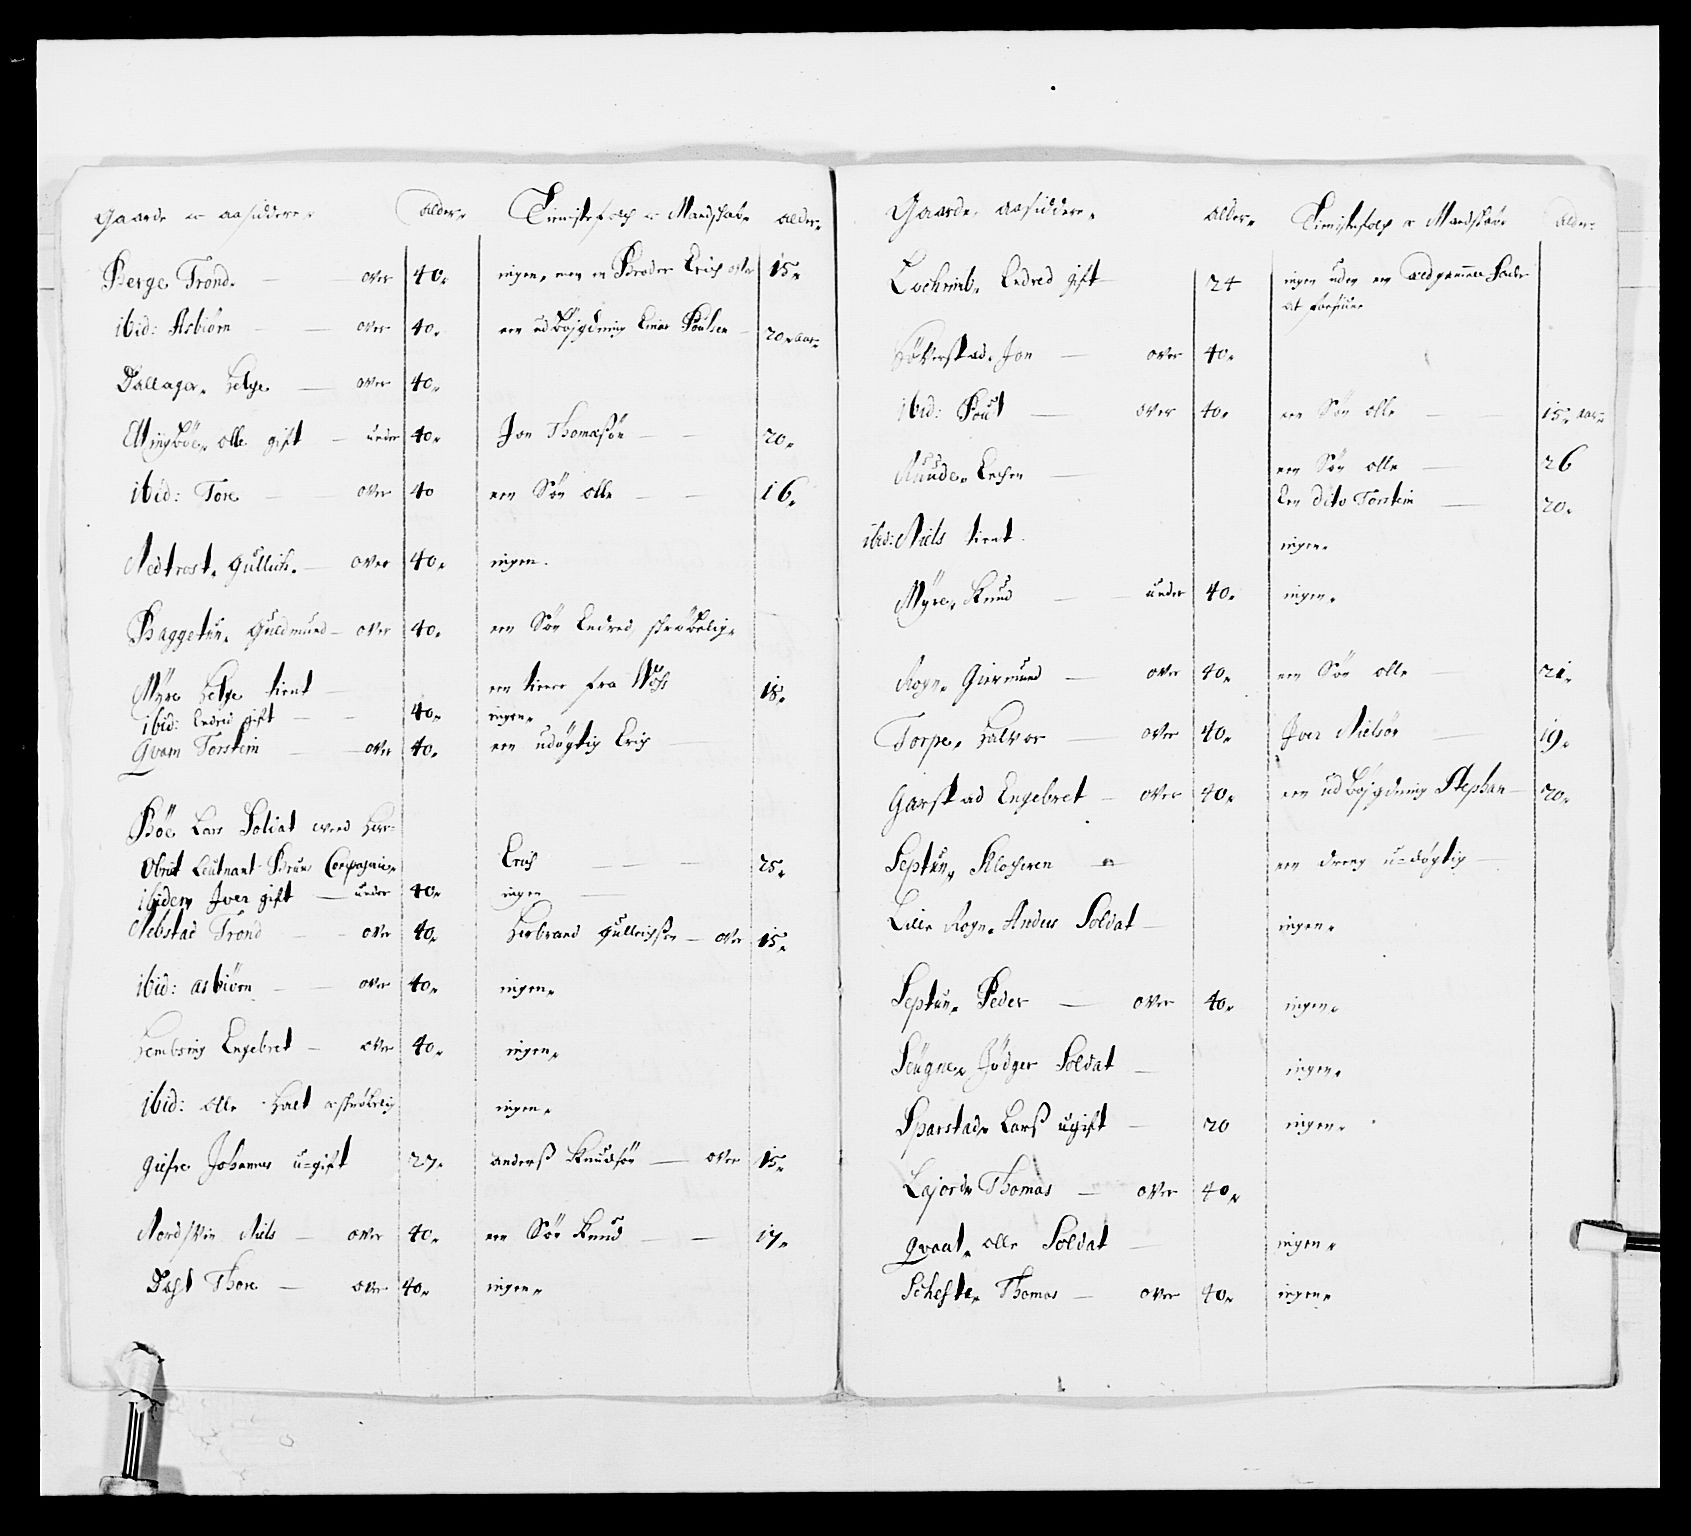 Gaarde og aasiddere. Alder. Tienistefolch og Mandskab. Alder.
Berge Trond. — over 40. ingen, men en Broder Erich over 15.
ibid: Asbiörn — over 40. een udböjgdning Einar Poulsen — 20. aar.
Dallager. Helge — over 40.
Ellingböe. olle gift — under 40. Jon Thomæsön — 20.
ibid: Tore — over 40 een Sön olle — 16.
Nedtrost. Gullich. — over 40. ingen.
Baggetun. Guldmund — over 40. een Sön Endred, skröbelig.
Myre Helge tient een tiener fra Wahs 18.
ibid: Endred gift — 40. ingen.
Qvam Torstein — over 40. een udögtig Erich
Böe Lars Soldat ved Her
Obrist Leutnant Bruns Compagnie. Erich — 25.
ibidem Iver gift — under 40. ingen
Nebstad Trond — over 40. Herbrand Gullichsen — over 15.
ibid: asbiörn — over 40. ingen.
Hembsing Engebret — over 40. ingen.
ibid: olle Halt og skröbelig ingen.
giefre Johannes u=gift 27. anderß Knudsön — over 15.
Nordsvin Niels — over 40. een Sön Knud — 17.
Dahl Thore — over 40. ingen.
Gaarde. aasiddere. Alder. Tienistefolch og Mandskab Alder.
Lochnib. Endred gift 24 ingen uden en Fader
at forsiune
Höverstad. Jon — over 40.
ibid: Poul — over 40. een Sön olle — 15. aar.
Ruude. Enchen — een Sön olle — 26
Een dito Torstein — 20.
ibid: Niels tient ingen.
Myre. Knud — under 40. ingen.
Rogn. Giermund — over 40. een Sön olle — 21.
Torpe. Halvor — over 40. Iver Nielsön — 19.
Garstad Engebret — over 40. een udböjgdning Stephan — 20.
Septun. Klocheren — een dreng u=döytig —
Lille Rogn. Anders Soldat — ingen.
Septun. Peder — over 40. ingen.
Seugne. Jödger Soldat — ingen.
Sparstad. Larß ugift — 20 ingen.
Lajord. Thomas — over 40.
Qvaal. olle Soldat — ingen.
Schefte. Thomas — over 40. ingen.